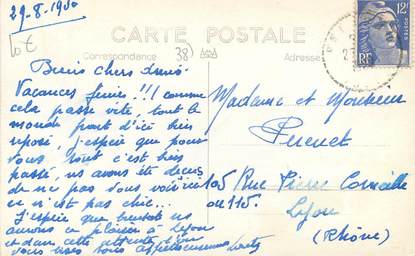 29-8-1950
CARTE POSTALE
Correspondance
38
Adresse
12F
RF
Biens chers Amis
Vacances finies !!! comme
cela passe vite, tout le
monde part d'ici bien
reposé, j'espère que pour
vous tout c'est bien
passé, ns avons été deçus
de ne pas vous voir ici
ce n'est pas chic...
J'espère que bientôt ns
aurons ce plaisir à Lyon
et dans cette attente
vous bises affectueuses
Madame et Monsieur
105 Rue Pierre Corneille
ou 115.
Lyon
(Rhône)